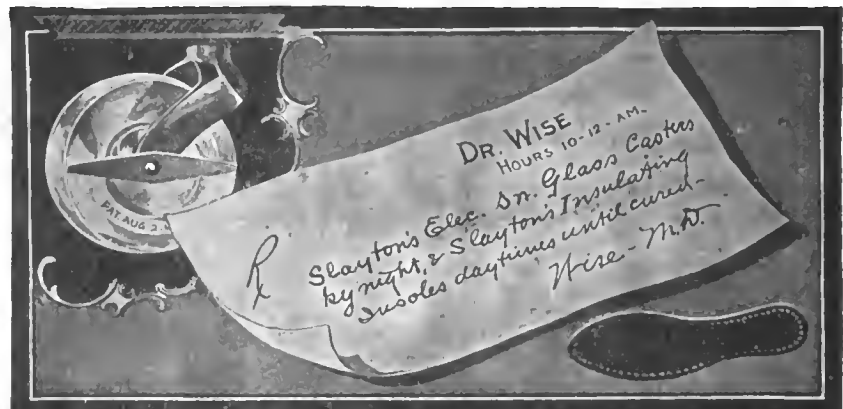 PAT. AUG 2.
DR. WISE
HOURS 10-12-AM-
Rx
Slayton's Elec. Sn. Glass Casters
by night, & Slayton's Insulating
Insoles daytimes until cured-
Wise-M.D.